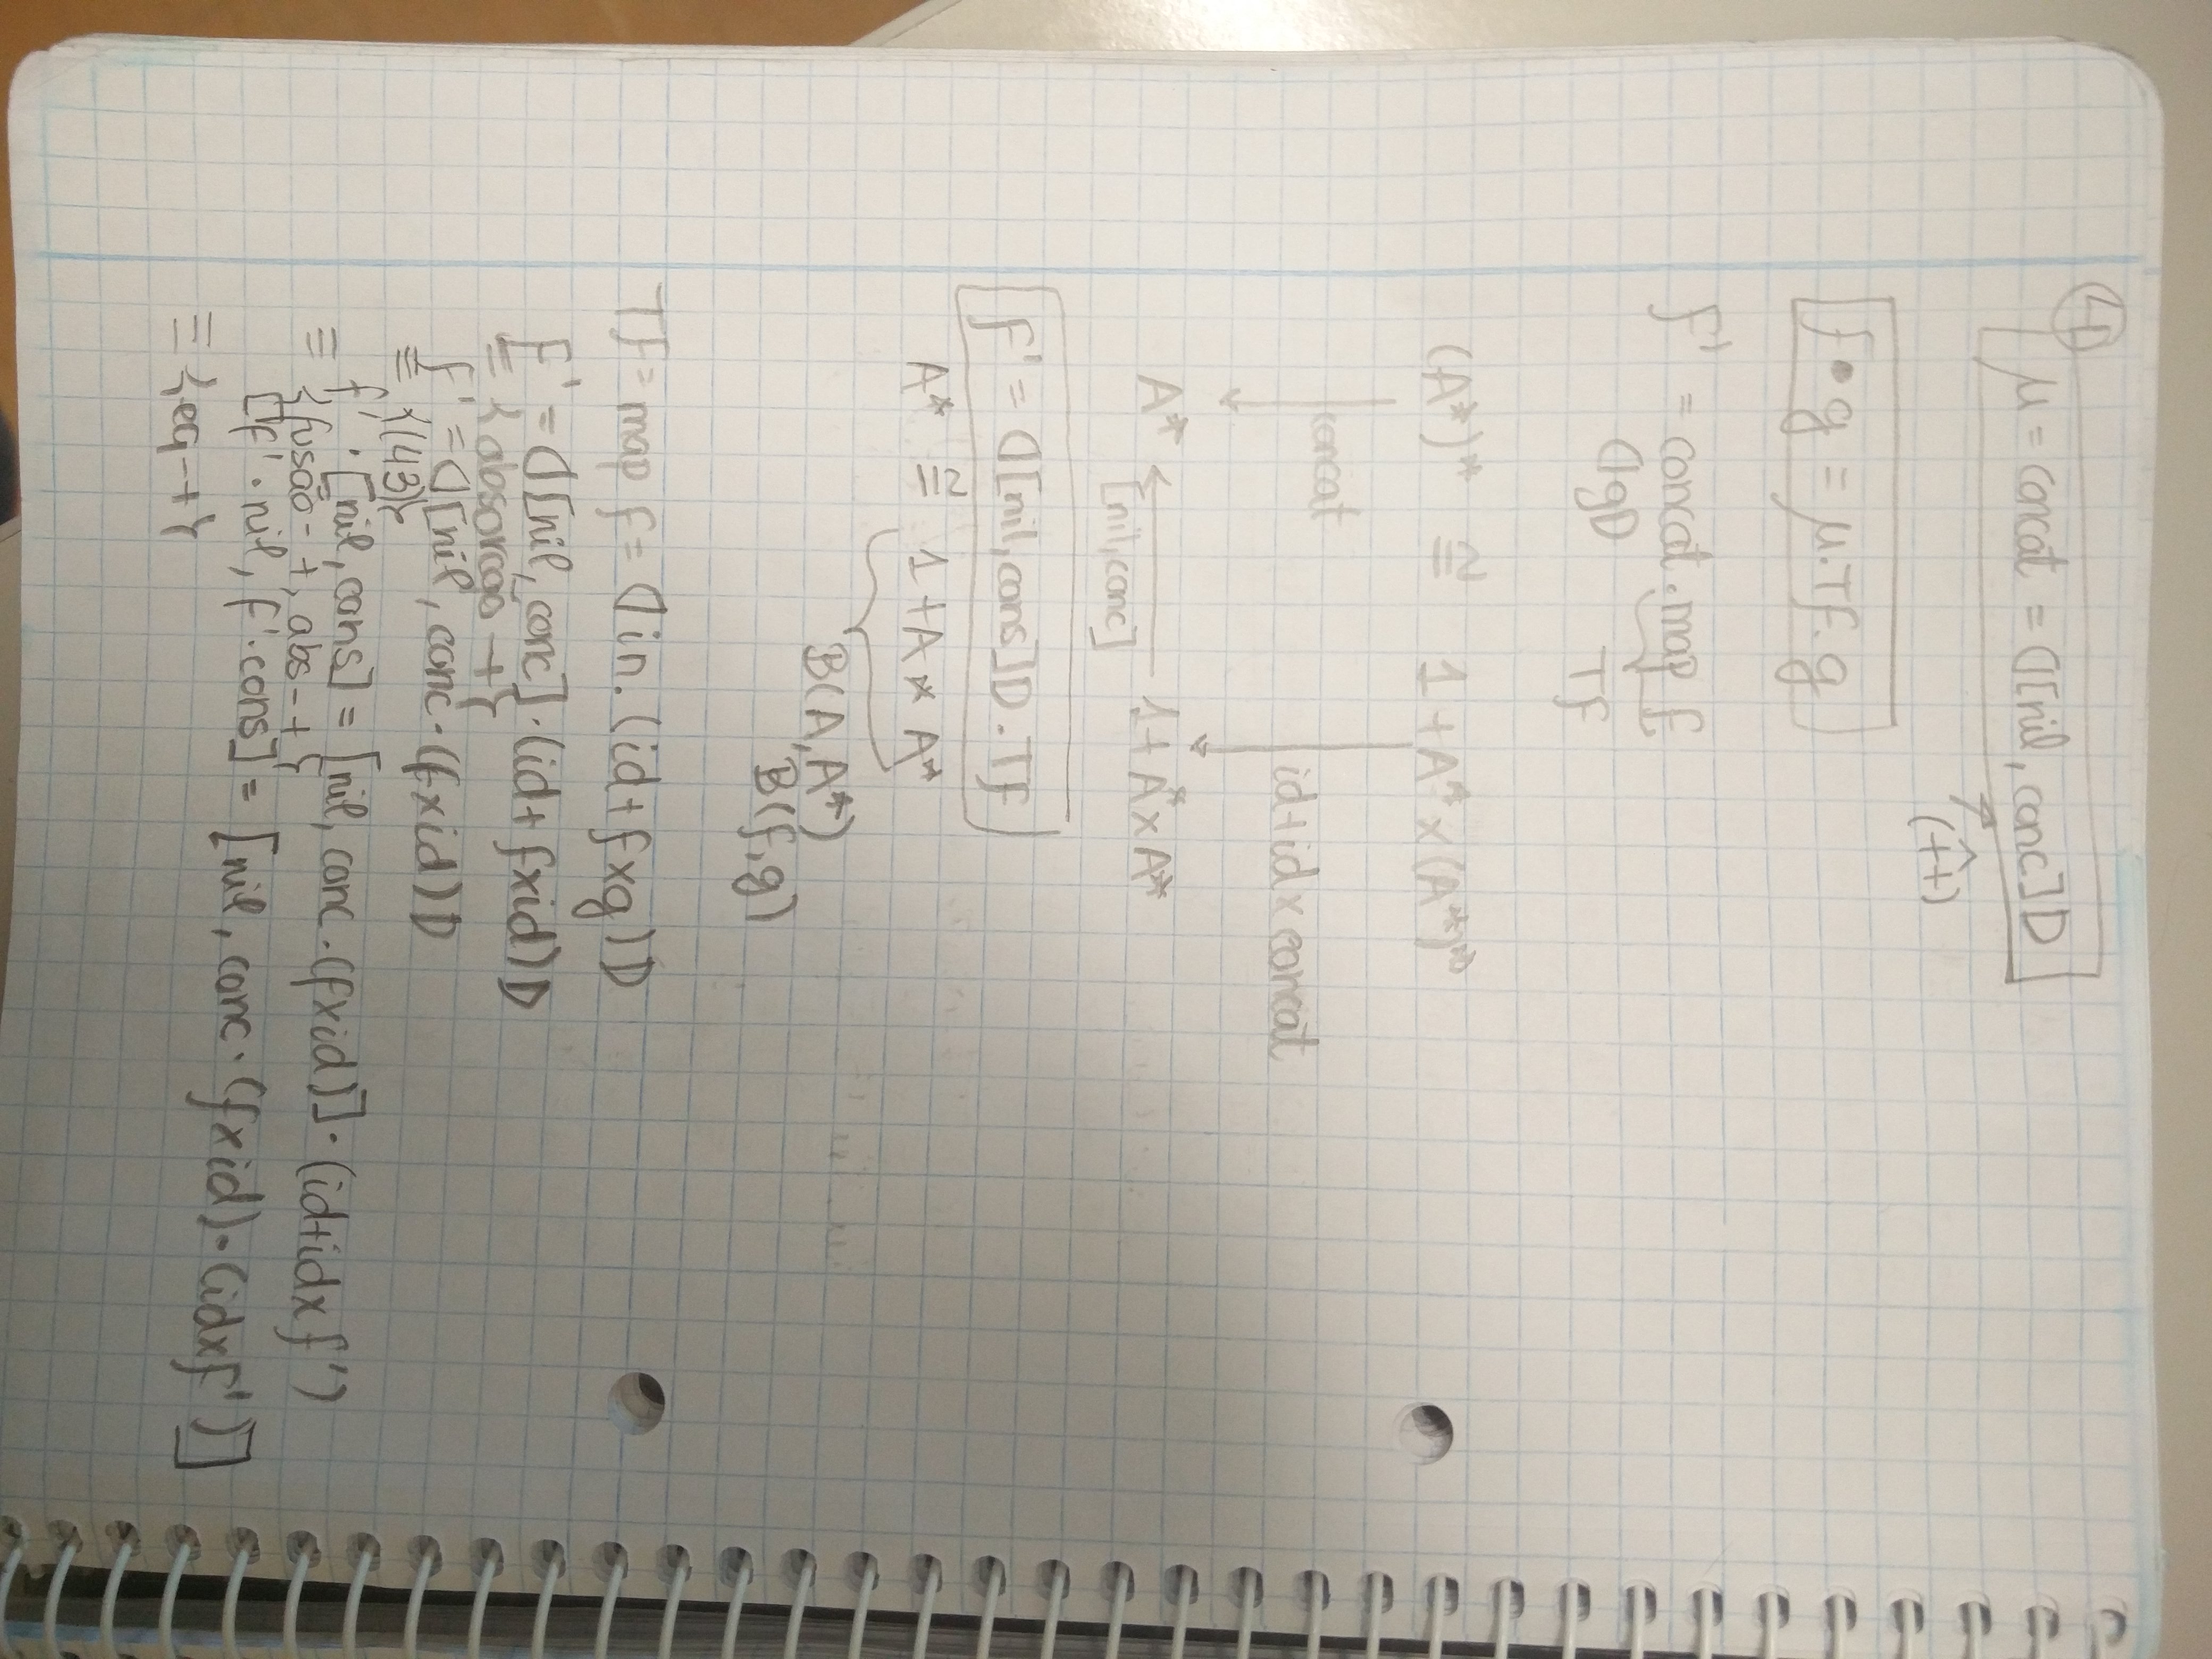 4
μ = concat = ⦇[nil, conc]⦈
(+̂+)
f • g = μ.Tf.g
f' = concat . map f
⦇g⦈ Tf
(A*)* ≅ 1 + A* × (A*)*
concat id+id×concat
A* ← 1+A*×A*
[nil,conc]
f' = ⦇[nil,cons]⦈ . Tf
A* ≅ 1 + A × A*
B(A,A*)
B(f,g)
Tf = map f = ⦇in.(id+f×g)⦈
f' = ⦇[nil, conc]·(id+f×id)⦈
≡ {absorção-+}
f' = ⦇[nil, conc·(f×id)⦈
≡ {(43)}
f' · [nil, cons] = [nil, conc.(f×id)]·(id+id×f')
≡ {fusão-+, abs-+}
[f'·nil, f'·cons] = [nil, conc·(f×id)·(id×f')]
≡ {eq-+}